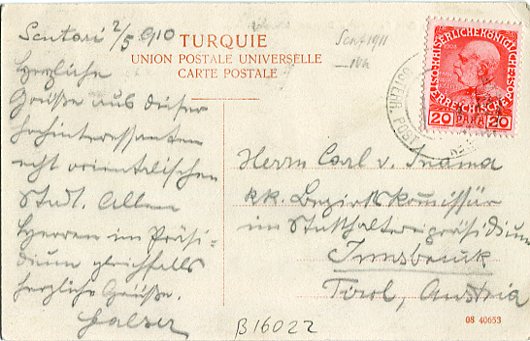 Scutari 2/5 910
TURQUIE
UNION POSTALE UNIVERSELLE
CARTE POSTALE
Herzliche
Grüße aus dieser
hochinteressanten
echt orientalischen
Stadt. Allen
Herren im Präsi-
dium gleichfalls
herzliche Grüße.
Scut 1911
KAISERLICHE KÖNIGLICHE
ÖSTERREICHISCHE POST
1908
20 PARA 20
Herrn Carl v. Inama
kk. Bezirkskommissär
im Statthaltereipräsidium
Innsbruck
Tirol, Austria
B16022
08 40653